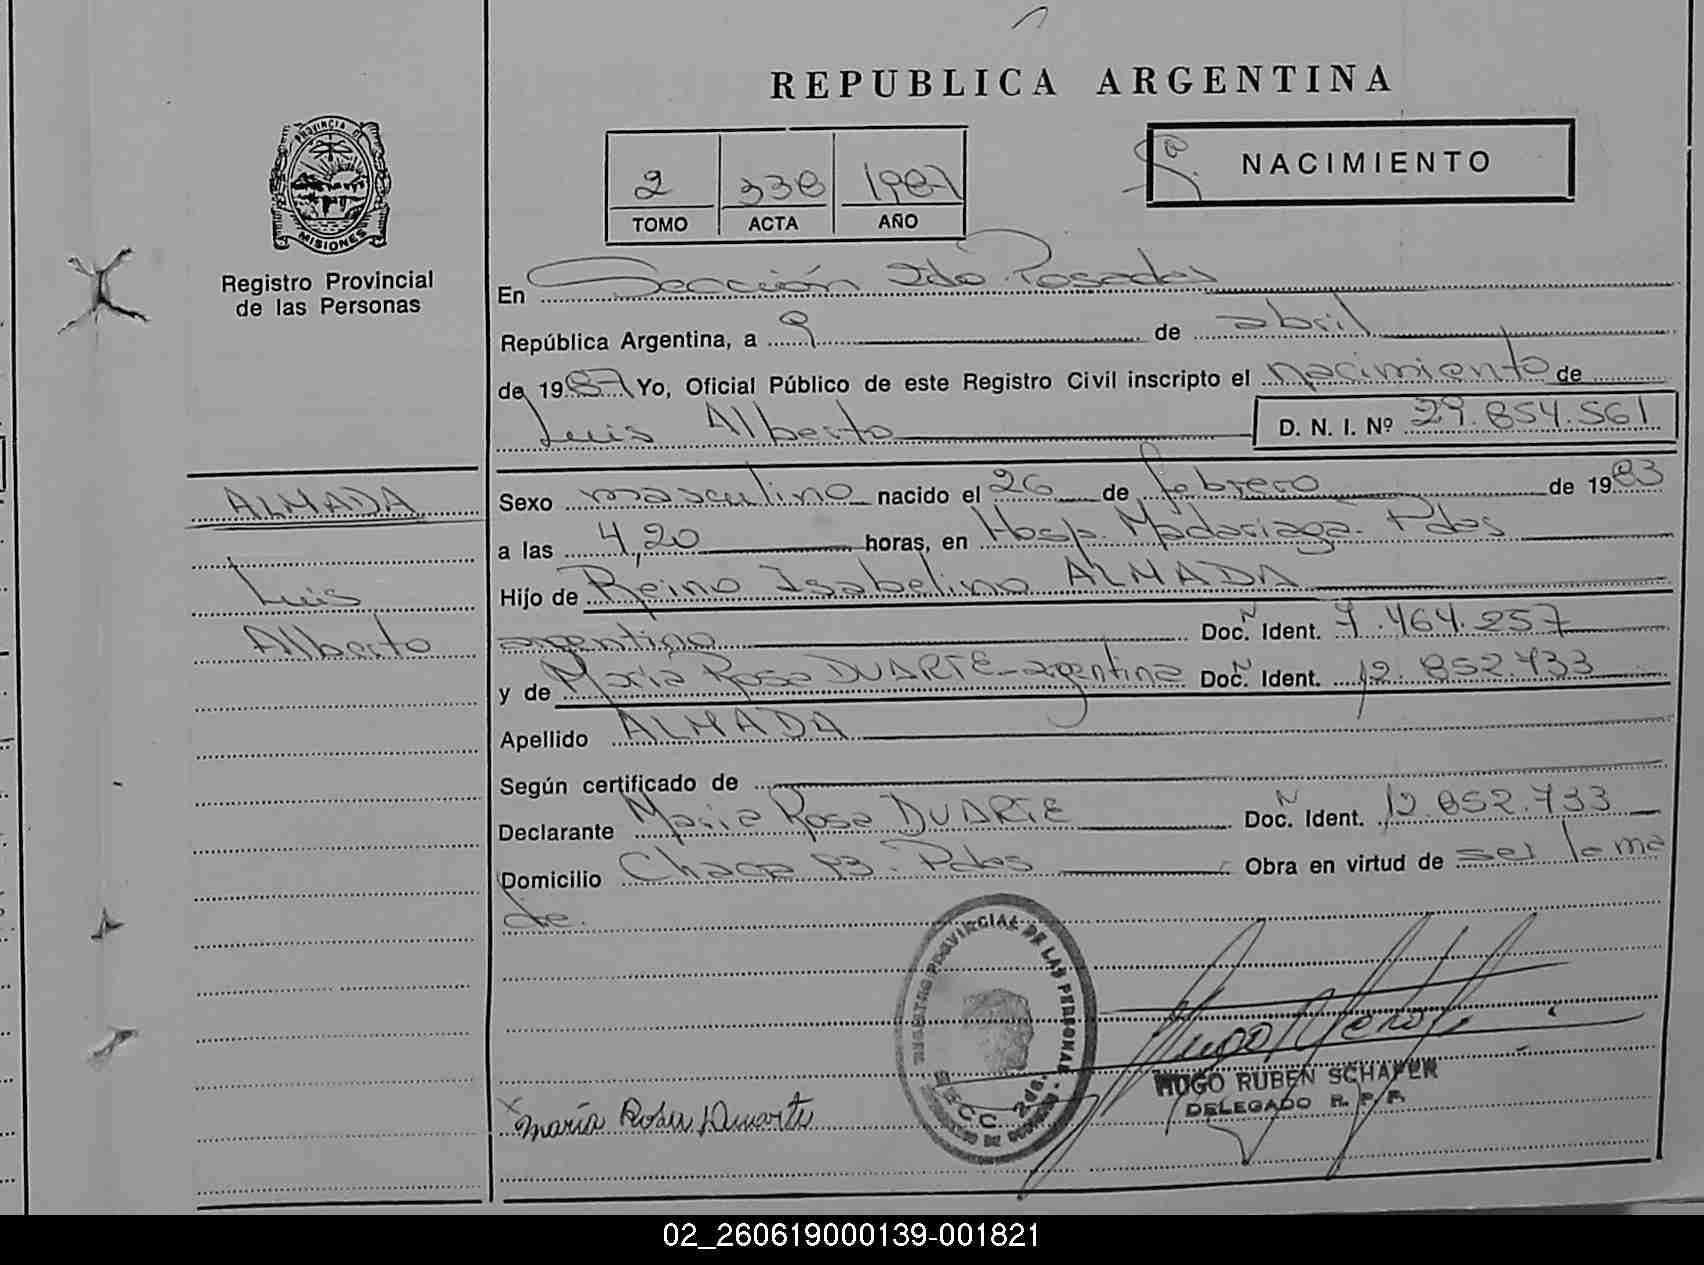 REPUBLICA ARGENTINA
PROVINCIA DE
MISIONES
Registro Provincial
de las Personas
2 338 1987
TOMO ACTA AÑO
NACIMIENTO
En Sección 2da Posadas
República Argentina, a 9 de abril
de 1987 Yo, Oficial Público de este Registro Civil inscripto el nacimiento de
Luis Alberto D. N. I. Nº 29.854.561
ALMADA
Luis
Alberto
Sexo masculino nacido el 26 de febrero de 1983
a las 4,20 horas, en Hosp. Madariaga. Pdas
Hijo de Reino Isabelino ALMADA
argentino Doc. N Ident. 7.464.257
y de María Rosa DUARTE - argentina Doc. N Ident. 12.852.733
Apellido ALMADA
Según certificado de
Declarante María Rosa DUARTE Doc. N Ident. 12.852.733
Domicilio Chaca 93. Pdas Obra en virtud de ser la ma
dre.
REGISTRO PROVINCIAL DE LAS PERSONAS
SECC. 2da.
HUGO RUBEN SCHAFER
DELEGADO R. P. P.
x María Rosa Duarte
02_260619000139-001821